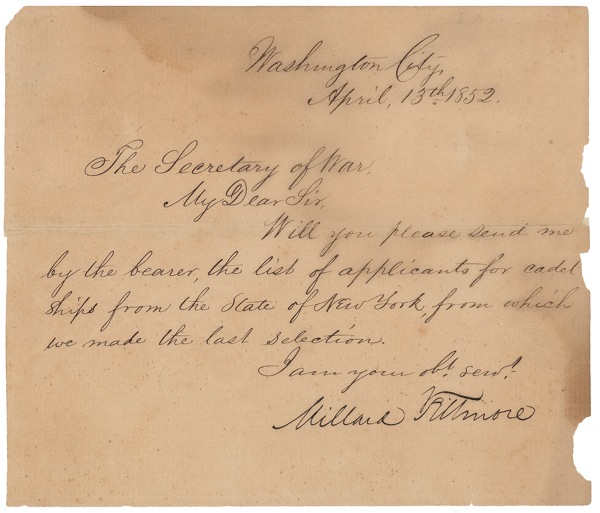 Washington City,
April, 13th 1852.
The Secretary of War,
My Dear Sir,
Will you please send me
by the bearer, the list of applicants for cadet
ships from the State of New York, from which
we made the last selection.
I am your obt. servt.
Millard Fillmore